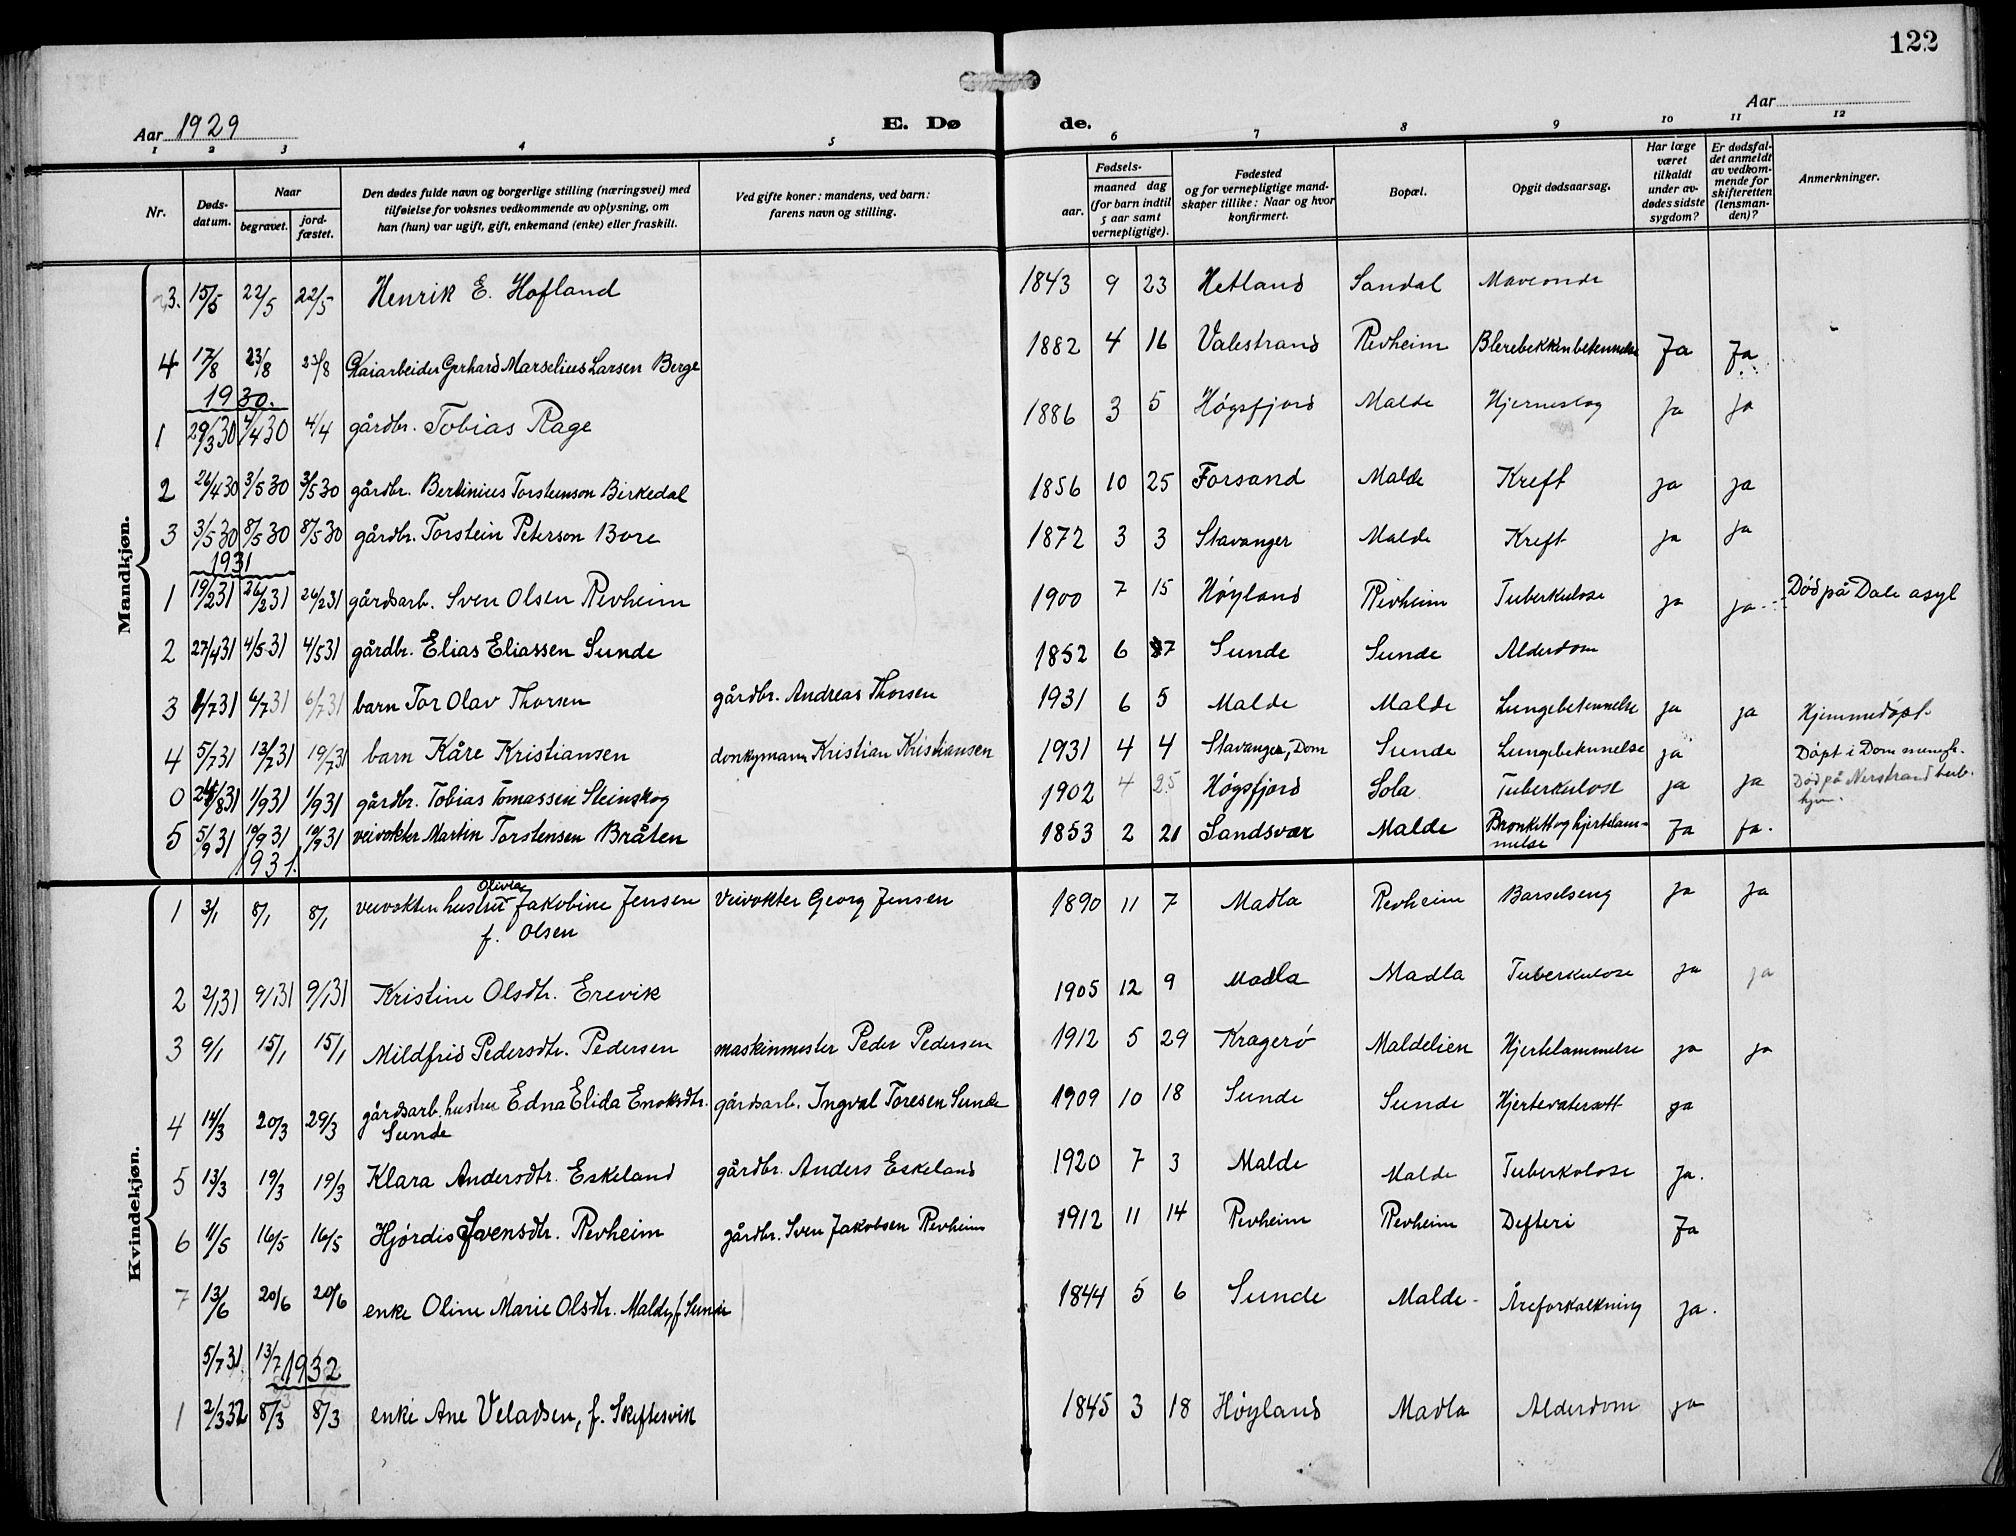 122
Aar 1929
E. Dø de.
Aar
1 2 3 4 5 6 7 8 9 10 11 12
Nr.
Døds-datum.
Naar
begravet.
jord-fæstet.
Den dødes fulde navn og borgerlige stilling (næringsvei) med
tilføielse for voksnes vedkommende av oplysning, om
han (hun) var ugift, gift, enkemand (enke) eller fraskilt.
Ved gifte koner: mandens, ved barn:
farens navn og stilling.
Fødsels-
aar.
maaned dag
(for barn indtil
5 aar samt
vernepligtige).
Fødested
og for vernepligtige mand-
skaper tillike: Naar og hvor
konfirmert.
Bopæl.
Opgit dødsaarsag.
Har læge
været
tilkaldt
under av-
dødes sidste
sygdom?
Er dødsfal-
det anmeldt
av vedkom-
mende for
skifteretten
(lensman-
den)?
Anmerkninger.
Mandkjøn.
3. 15/5 22/5 22/5 Henrik E. Hofland 1843 9 23 Hetland Sandal
4 17/8 23/8 23/8 Kaiarbeider Gerhard Marselius Larsen Berge 1882 4 16 Valestrand Revheim Blerebekkenbetennelse Ja Ja
1930.
1 29/3 30 4/4 30 4/4 gårdbr. Tobias Rage 1886 3 5 Høgsfjord Malde Hjerneslag ja ja
2 26/4 30 3/5 30 3/5 30 gårdbr. Bertinius Torsteinson Birkedal 1856 10 25 Forsand Malde Kreft ja ja
3 3/5 30 8/5 30 8/5 30 gårdbr. Torstein Peterson Bore 1872 3 3 Stavanger Malde Kreft ja ja
1931
1 19/2 31 26/2 31 26/2 31 gårdsarb. Sven Olsen Revheim 1900 7 15 Høyland Revheim Tuberkulose ja ja Død på Dale asyl
2 27/4 31 4/5 31 4/5 31 gårdbr. Elias Eliassen Sunde 1852 6 7 Sunde Sunde Alderdom
3 /7 31 6/7 31 6/7 31 barn Tor Olav Thorsen gårdbr. Andreas Thorsen 1931 6 5 Malde Malde Lungebetennelse ja ja Hjemmedøpt
4 5/7 31 13/7 31 19/7 31 barn Kåre Kristiansen donkymann Kristian Kristiansen 1931 4 4 Stavanger, Dom Sunde Lungebetennelse ja Døpt i Dom menigh.
0 /8 31 1/9 31 1/9 31 gårdbr. Tobias Tomassen Steinskog 1902 4 25 Høgsfjord Sola Tuberkulose ja ja Død på Nerstrand tub. hjem.
5 5/9 31 10/9 31 10/9 31 veivokter Martin Torstensen Bråten 1853 2 21 Sandsvær Malde Bronkitt og hjertelam-
melse Ja ja.
1931.
Kvindekjøn.
1 3/1 8/1 8/1 veivokter hustru Olivia Jakobine Jensen Veivokter Georg Jensen 1890 11 7 Madla Revheim Barselseng ja ja
f. Olsen
2 2/1 31 9/1 31 9/1 31 Kristine Olsdtr. Erevik 1905 12 9 Madla Madla Tuberkulose ja ja
3 9/1 15/1 15/1 Mildfrid Pedersdtr. Pedersen maskinmester Peder Pedersen 1912 5 29 Kragerö Maldelien Hjertelammelse ja ja
4 14/3 20/3 29/3 gårdsarb. hustru Edna Elida Enoksdtr. gårdsarb. Ingval Toresen Sunde 1909 10 18 Sunde Sunde Hjertevatersott ja
Sunde
5 13/3 19/3 19/3 Klara Andersdtr. Eskeland gårdbr. Anders Eskeland 1920 7 3 Malde Malde Tuberkolose Ja.
6 11/5 16/5 16/5 Hjørdis Svensdtr. Revheim gårdbr. Sven Jakobsen Revheim 1912 11 14 Revheim Revheim Difteri Ja
7 13/6 20/6 20/6 enke Oline Marie Olsdtr. Malde, f. Sunde 1844 5 6 Sunde Malde Åreforkalkning ja.
5/7 31. 13/7
1932
1 2/3 32 8/3 8/3 enke Ane Veladsen, f. Skiftesvik 1845 3 18 Høyland Madla Alderdom ja